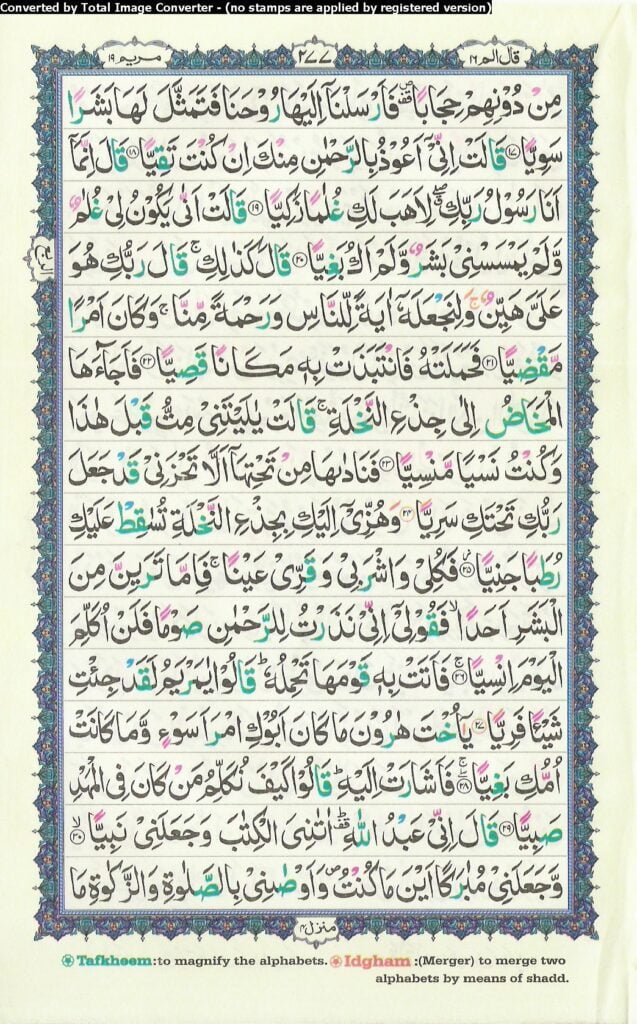 Converted by Total Image Converter - (no stamps are applied by registered version)
قال الم ١٦
٢٧٧
مريم ١٩
مِنْ دُوْنِهِمْ حِجَابًا فَاَرْسَلْنَاۤ اِلَيْهَا رُوْحَنَا فَتَمَثَّلَ لَهَا بَشَرًا
سَوِيًّا ﴿۱۷﴾ قَالَتْ اِنِّیْۤ اَعُوْذُ بِالرَّحْمٰنِ مِنْكَ اِنْ كُنْتَ تَقِيًّا ﴿۱۸﴾ قَالَ اِنَّمَاۤ
اَنَا رَسُوْلُ رَبِّكِ ۖ لِاَهَبَ لَكِ غُلٰمًا زَكِيًّا ﴿۱۹﴾ قَالَتْ اَنّٰى يَكُوْنُ لِيْ غُلٰمٌ
وَّلَمْ يَمْسَسْنِيْ بَشَرٌ وَّلَمْ اَكُ بَغِيًّا ﴿۲۰﴾ قَالَ كَذٰلِكِ ۚ قَالَ رَبُّكِ هُوَ
عَلَيَّ هَيِّنٌ ۚ وَلِنَجْعَلَهٗۤ اٰيَةً لِّلنَّاسِ وَرَحْمَةً مِّنَّا ۚ وَكَانَ اَمْرًا
مَّقْضِيًّا ﴿۲۱﴾ فَحَمَلَتْهُ فَانْتَبَذَتْ بِهٖ مَكَانًا قَصِيًّا ﴿۲۲﴾ فَاَجَآءَهَا
الْمَخَاضُ اِلٰى جِذْعِ النَّخْلَةِ ۚ قَالَتْ يٰلَيْتَنِيْ مِتُّ قَبْلَ هٰذَا
وَكُنْتُ نَسْيًا مَّنْسِيًّا ﴿۲۳﴾ فَنَادٰىهَا مِنْ تَحْتِهَاۤ اَلَّا تَحْزَنِيْ قَدْ جَعَلَ
رَبُّكِ تَحْتَكِ سَرِيًّا ﴿۲۴﴾ وَهُزِّيْۤ اِلَيْكِ بِجِذْعِ النَّخْلَةِ تُسٰقِطْ عَلَيْكِ
رُطَبًا جَنِيًّا ﴿۲۵﴾ فَكُلِيْ وَاشْرَبِيْ وَقَرِّيْ عَيْنًا ۚ فَاِمَّا تَرَيِنَّ مِنَ
الْبَشَرِ اَحَدًا ۙ فَقُوْلِيْۤ اِنِّيْ نَذَرْتُ لِلرَّحْمٰنِ صَوْمًا فَلَنْ اُكَلِّمَ
الْيَوْمَ اِنْسِيًّا ﴿۲۶﴾ فَاَتَتْ بِهٖ قَوْمَهَا تَحْمِلُهٗ ؕ قَالُوْا يٰمَرْيَمُ لَقَدْ جِئْتِ
شَيْئًا فَرِيًّا ﴿۲۷﴾ يٰۤاُخْتَ هٰرُوْنَ مَا كَانَ اَبُوْكِ امْرَاَ سَوْءٍ وَّمَا كَانَتْ
اُمُّكِ بَغِيًّا ﴿۲۸﴾ فَاَشَارَتْ اِلَيْهِ ؕ قَالُوْا كَيْفَ نُكَلِّمُ مَنْ كَانَ فِي الْمَهْدِ
صَبِيًّا ﴿۲۹﴾ قَالَ اِنِّيْ عَبْدُ اللّٰهِ ؕ اٰتٰىنِيَ الْكِتٰبَ وَجَعَلَنِيْ نَبِيًّا ﴿۳۰﴾
وَّجَعَلَنِيْ مُبٰرَكًا اَيْنَ مَا كُنْتُ ۪ وَاَوْصٰنِيْ بِالصَّلٰوةِ وَالزَّكٰوةِ مَا
منزل ٤
Tafkheem:to magnify the alphabets. Idgham :(Merger) to merge two
alphabets by means of shadd.